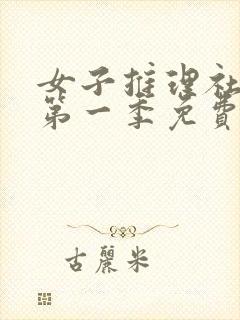 女子推理社
第一季免費
古麗米